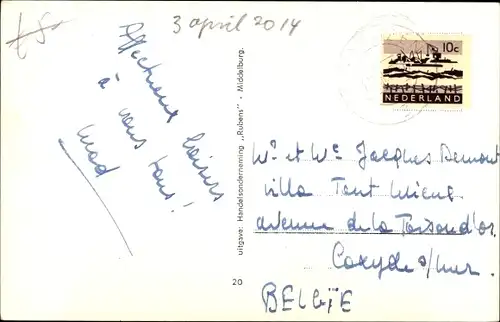 3 april 2014
Affectueux baisers
à vous tous!
uitgave: Handelsonderneming „Rubens" - Middelburg.
20
10c
NEDERLAND
Mr et Me Jacques Demont
villa Tant Mieux
avenue de la Toison d'or
Coxyde s/mer.
BELGÏE